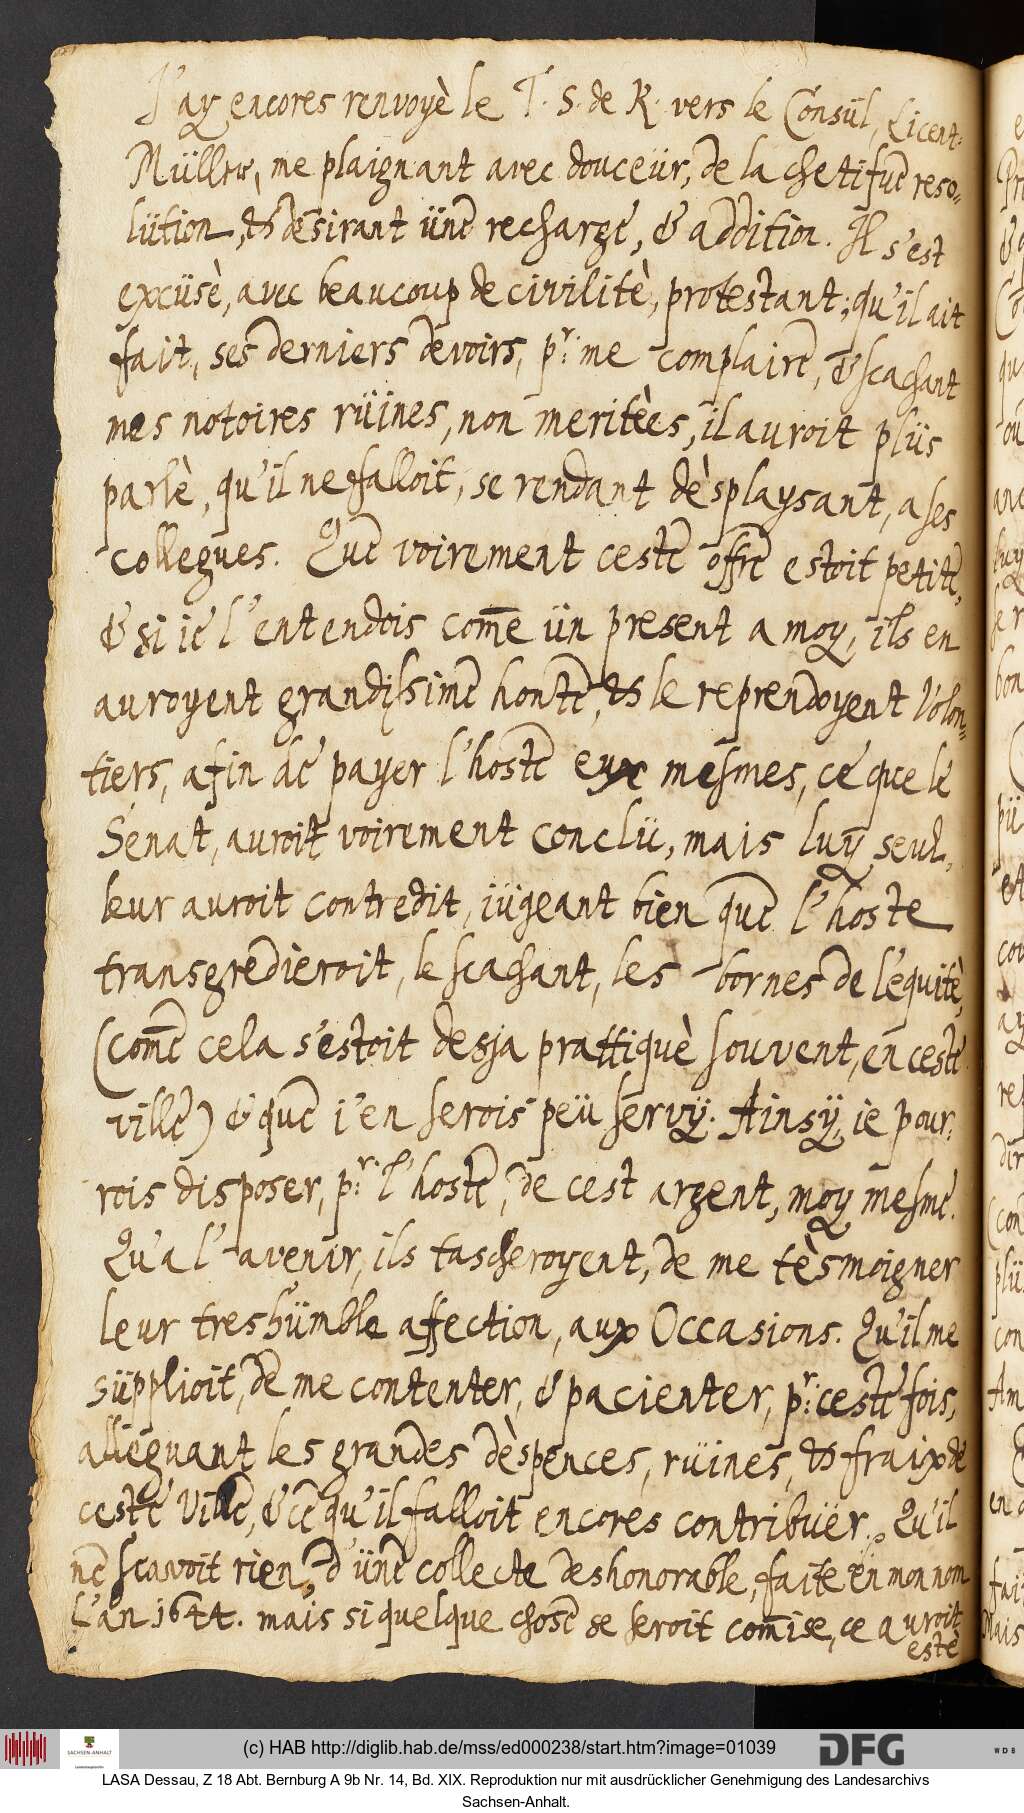 J'ay encores renvoyè le T. S. de R. vers le Consül, Licent:
Müller, me plaignant avec douceür, de la chetifve reso-
lütion, & desirant üne recharge, & addition. Il s'est
excüsè, avec beaucoup de civilitè, protestant; qu'il ait
fait, ses derniers devoirs, pr: me complaire, & scachant
mes notoires rüines, non meritèes, il auroit plüs
parlè, qu'il ne falloit, se rendant dèsplaysant, a ses
collegues. Que voirement ceste offre estoit petite,
& si ie l'entendois com̄e ün present a moy, ils en
auroyent grandissime honte, & le reprendoyent volon-
tiers, afin de payer l'hoste eux mesmes, ce que le
Senat, auroit voirement conclü, mais luy seul,
leur auroit contredit, iügeant bien que l'hoste
transgredieroit, le scachant, les bornes de l'equitè,
(com̄e cela s'estoit desja prattiquè souvent, en ceste
ville) & que i'en serois peü servÿ. Ainsÿ, ie pour-
rois disposer, pr: l'hoste, de cest argent, moy mesme.
Qu'a l'avenir, ils tascheroyent, de me tèsmoigner
leur treshümble affection, aux Occasions. Qu'il me
süpplioit, de me contenter, & pacienter, pr: ceste fois,
alleguant les grandes dèspences, rüines, & fraix de
ceste ville, & ce qu'il falloit encores contribüer. Qu'il
ne scavoit rien, d'üne collecte deshonorable, faite en mon nom
L'an 1644. mais si quelque chose se seroit com̄ise, ce auroit
estè
(c) HAB http://diglib.hab.de/mss/ed000238/start.htm?image=01039
SACHSEN-ANHALT
DFG
WDB
LASA Dessau, Z 18 Abt. Bernburg A 9b Nr. 14, Bd. XIX. Reproduktion nur mit ausdrücklicher Genehmigung des Landesarchivs
Sachsen-Anhalt.